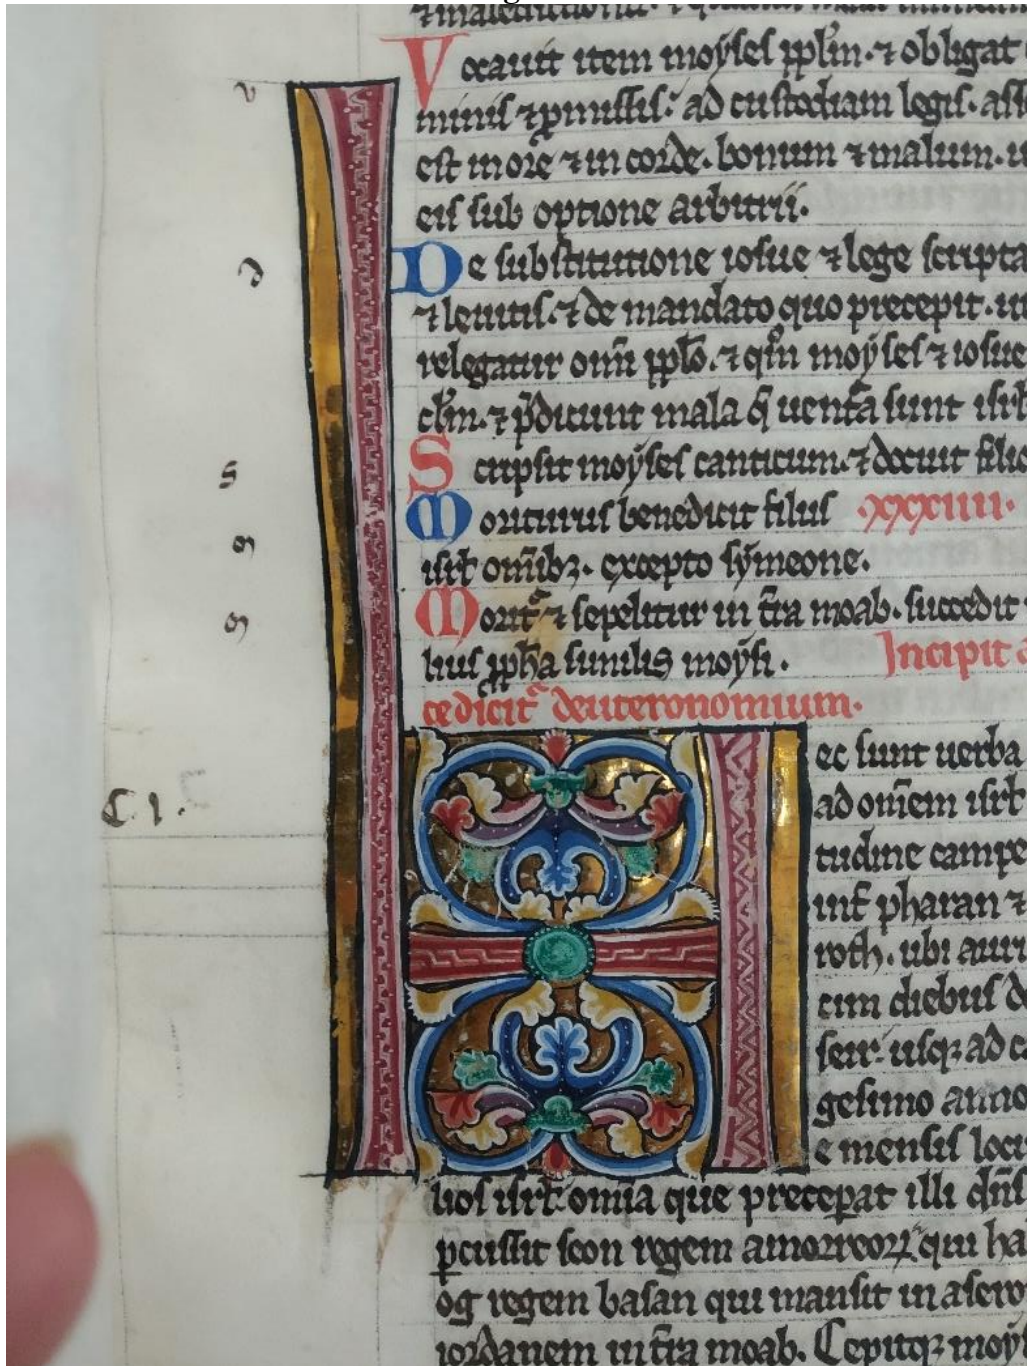 v
Vocauit item moyses pplm · ⁊ obligat
minis ⁊ pmissis : ad custodiam legis ·
est in ore ⁊ in corde · bonum ⁊ malum ·
eis sub optione arbitrii ·
d
De substitutione iosue ⁊ lege scripta
⁊ leuitis · ⁊ de mandato quo precepit ·
relegatur omi pplo · ⁊ qm moyses ⁊ iosue
⁊ pdicunt mala q uentura sunt isrl
s
Scripsit moyses canticum · ⁊ docuit filio
m
Moriturus benedicit filius ·xxxiiii·
isrl omibꝫ · excepto symeone ·
m
Morit ⁊ sepelitur in tra moab · succedit
lius ppha similis moysi · Incipit
dicit deuteronomium ·
C I ·
Hec sunt uerba
ad omem isrl
tudine campe
int pharan ⁊
roth · ubi auri
cim diebus d
seir · usqꝫ ad c
gesimo anno
e mensis locu
lios isrl omia que preceperat illi dns
pcussit seon regem amorreoꝝ qui ha
og regem basan qui mansit in asero
iordanem in tra moab · Cepitqꝫ moy